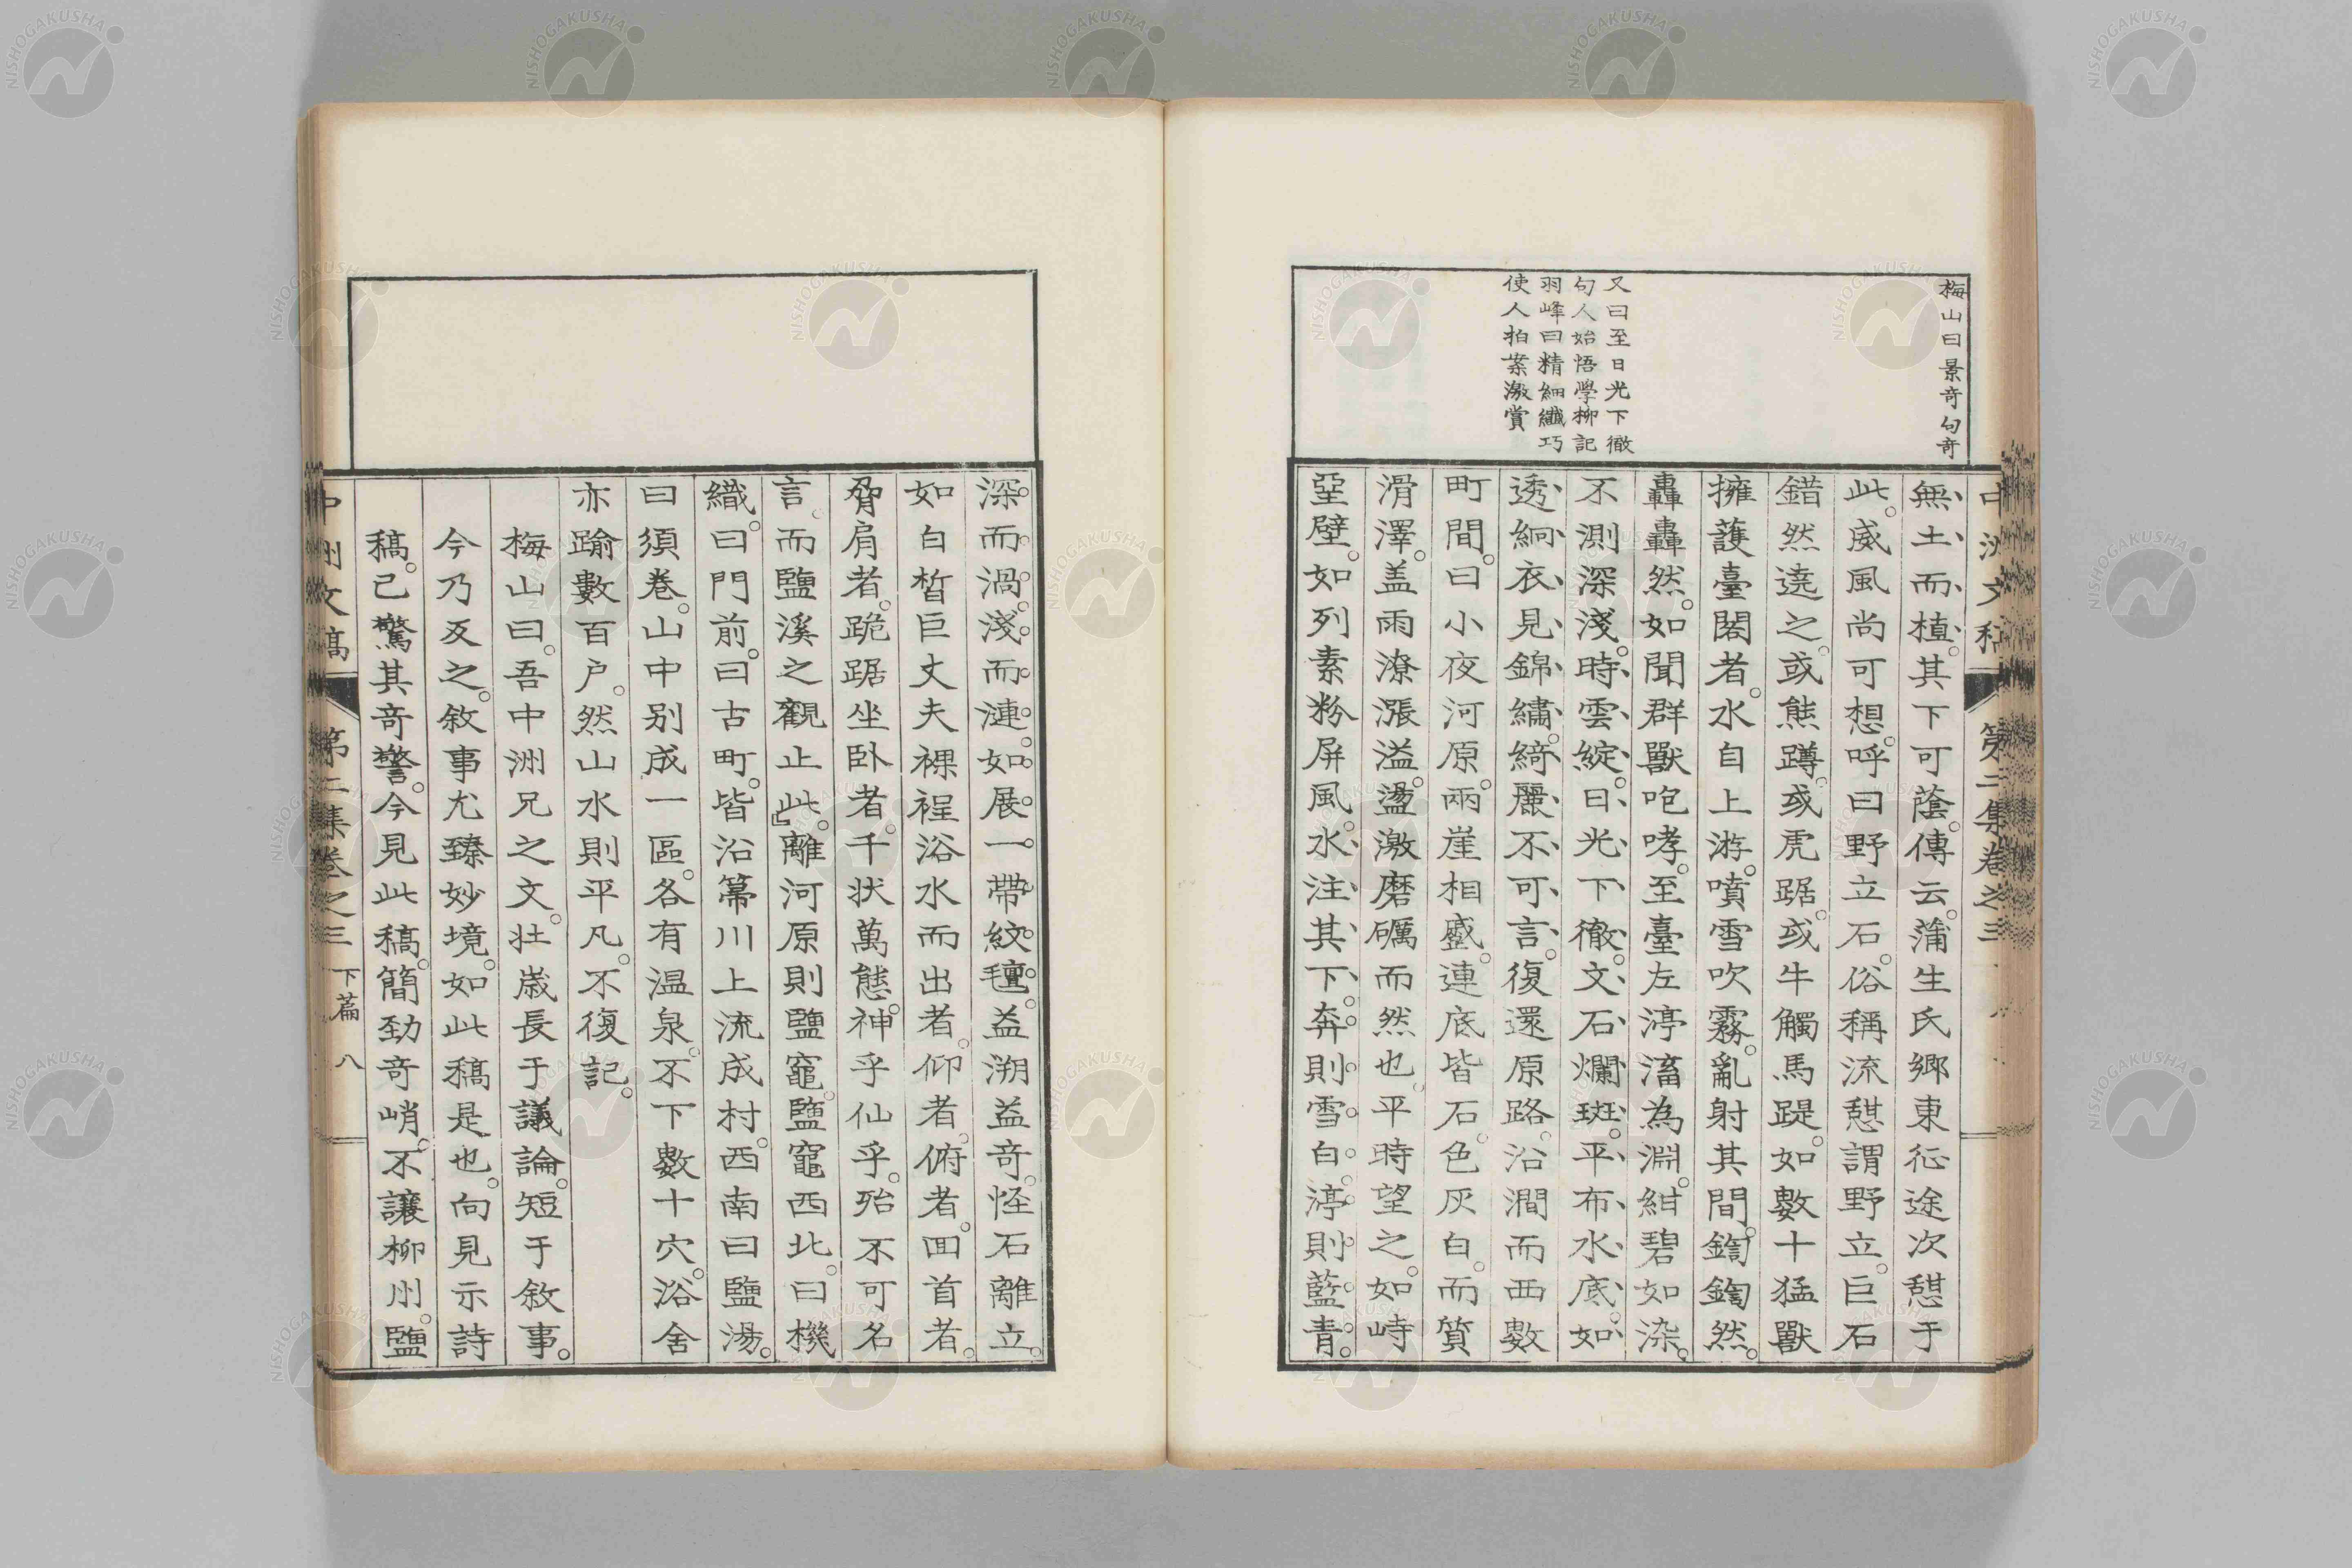 梅山曰景奇句奇
又曰至日光下徹
句人始悟學柳記
羽峰曰精細纖巧
使人拍案激賞
無土而植。其下可蔭。傳云。蒲生氏鄉東征途次憇于
此。威風尚可想。呼曰野立石。俗稱流憇謂野立。巨石
錯然遶之。或熊蹲。或虎踞。或牛觸馬踶。如數十猛獸
擁護臺閣者。水自上游。噴雪吹霧。亂射其間。鍧鍧然。
轟轟然。如聞群獸咆哮。至臺左渟滀為淵。紺碧如染。
不測深淺。時雲綻。日光下徹。文石爛斑。平布水底。如
透絅衣見錦繡。綺麗不可言。復還原路。沿澗而西數
町間。曰小夜河原。兩崖相蹙。連底皆石。色灰白。而質
滑澤。盖雨潦漲溢。盪激磨礪而然也。平時望之。如峙
堊壁。如列素粉屏風。水注其下。奔則雪白。渟則藍青。
深而渦。淺而漣。如展一帶紋氊。益溯益奇。怪石離立。
如白皙巨丈夫裸裎浴水而出者。仰者。俯者。回首者。
脅肩者。跪踞坐卧者。千状萬態。神乎仙乎。殆不可名
言。而鹽溪之觀止此。』離河原則鹽竈。鹽竈西北。曰機
織。曰門前。曰古町。皆沿箒川上流成村。西南曰鹽湯。
曰須卷。山中别成一區。各有温泉。不下數十穴。浴舍
亦踰數百户。然山水則平凡。不復記。
梅山曰。吾中洲兄之文。壯歳長于議論。短于敘事。
今乃反之。敘事尤臻妙境。如此稿是也。向見示詩
稿。已驚其奇警。今見此稿。簡勁奇峭。不讓柳州。鹽
中洲文稿
第二集卷之三
下篇
八
NISHOGAKUSHA